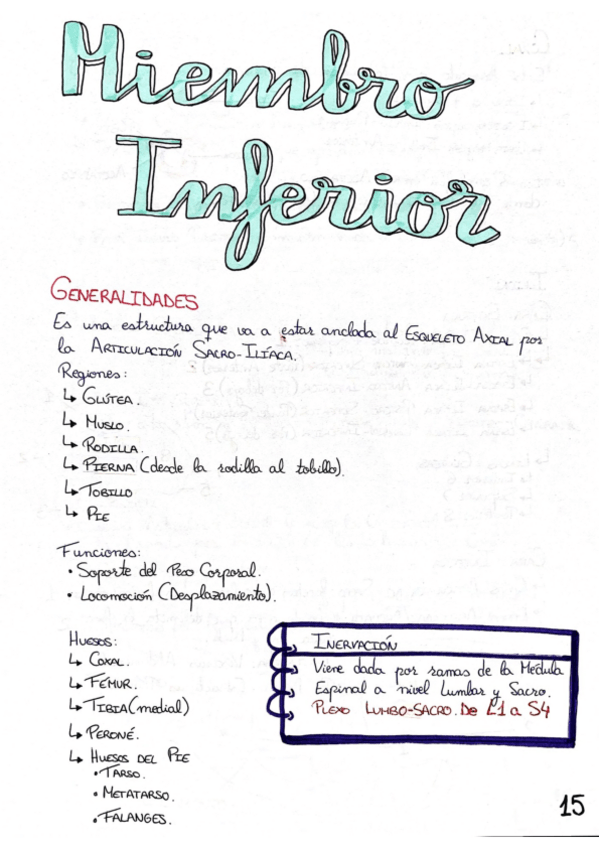 Miembro
Inferior
GENERALIDADES
Es una estructura que va a estar anclada al ESQUELETO AXIAL por
la ARTICULACIÓN SACRO-ILÍACA.
Regiones:
↳ GLÚTEA.
↳ MUSLO.
↳ RODILLA.
↳ PIERNA (desde la rodilla al tobillo).
↳ TOBILLO
↳ PIE
Funciones:
• Soporte del Peso Corporal.
• Locomoción (Desplazamiento).
HUESOS:
↳ COXAL.
↳ FÉMUR.
↳ TIBIA (medial)
↳ PERONÉ.
↳ HUESOS DEL PIE
• TARSO.
• METATARSO.
• FALANGES.
INERVACIÓN
Viene dada por ramas de la Médula
Espinal a nivel Lumbar y Sacro.
PLEXO LUMBO-SACRO. De L1 a S4
15